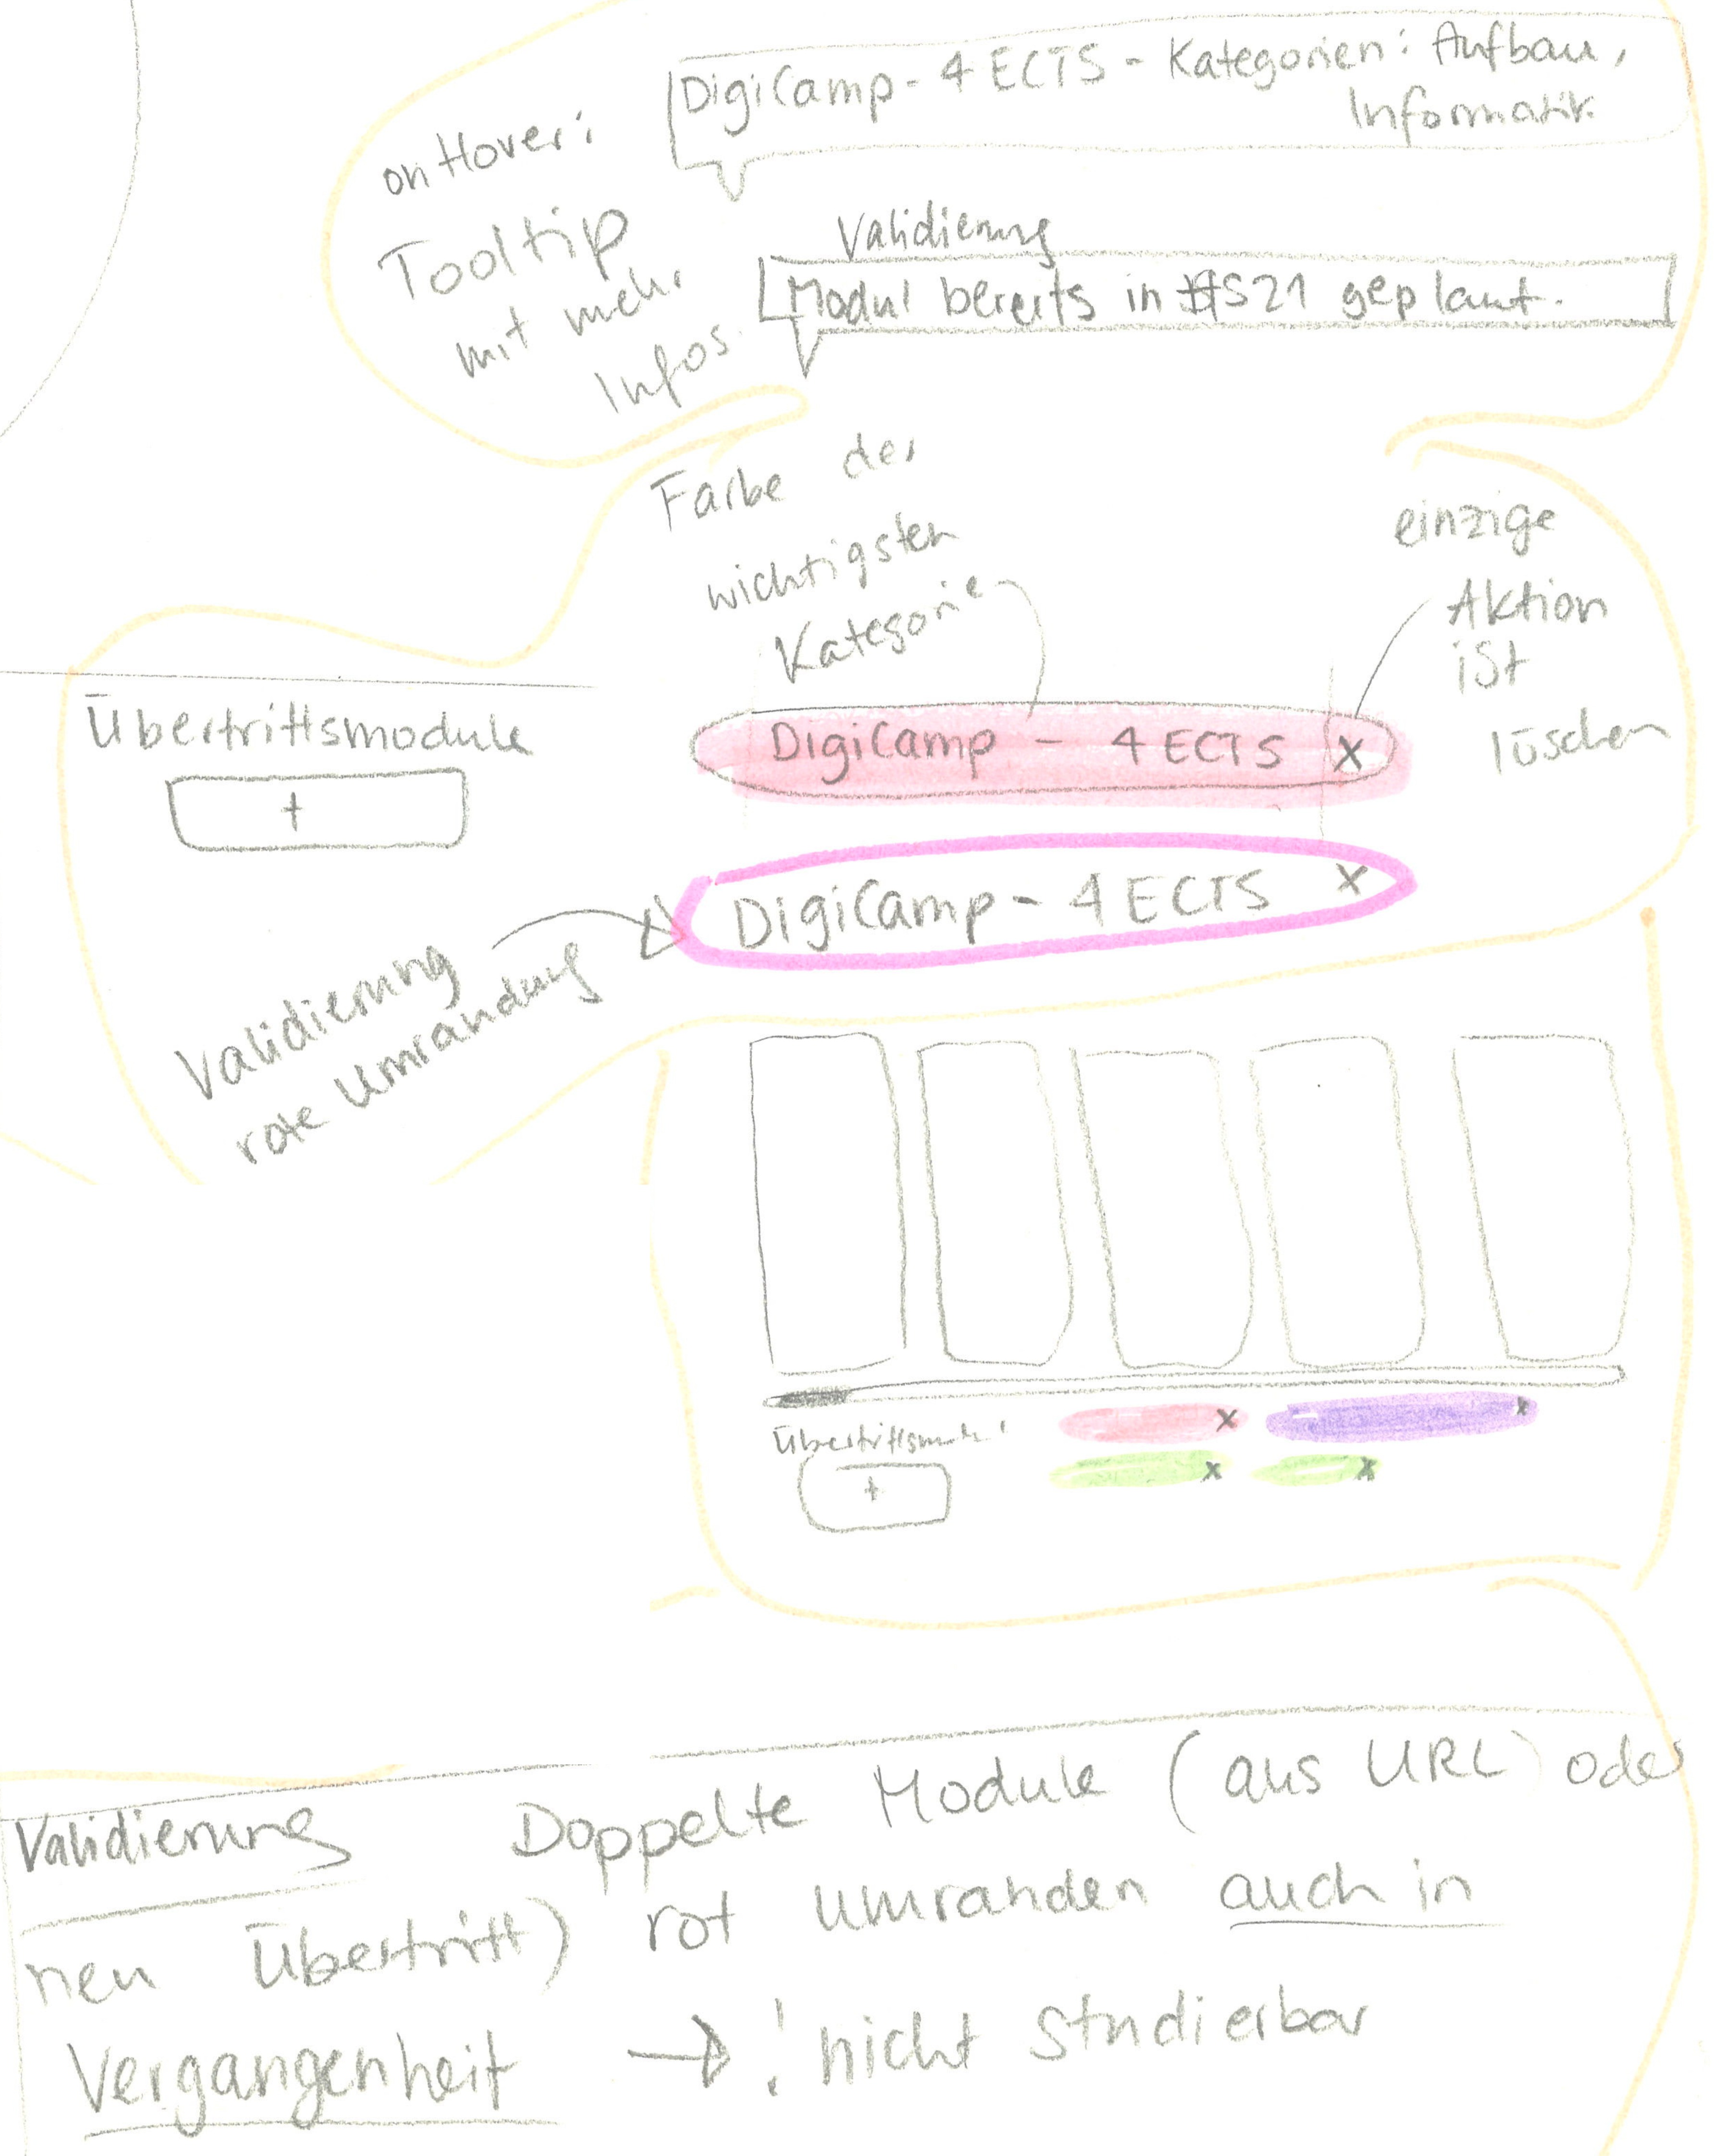 onHover:
Tooltip
mit mehr
Infos.
DigiCamp - 4 ECTS - Kategorien: Aufbau,
Informatik
Validierung
Modul bereits in HS21 geplant.
Farbe der
wichtigsten
Kategorie
einzige
Aktion
ist
löschen
Übertrittsmodule
+
DigiCamp - 4 ECTS x
DigiCamp - 4 ECTS x
Validierung
rote Umrandung
x x
+
x x
Validierung Doppelte Module (aus URL oder
neu Übertritt) rot umranden auch in
Vergangenheit → ! nicht studierbar